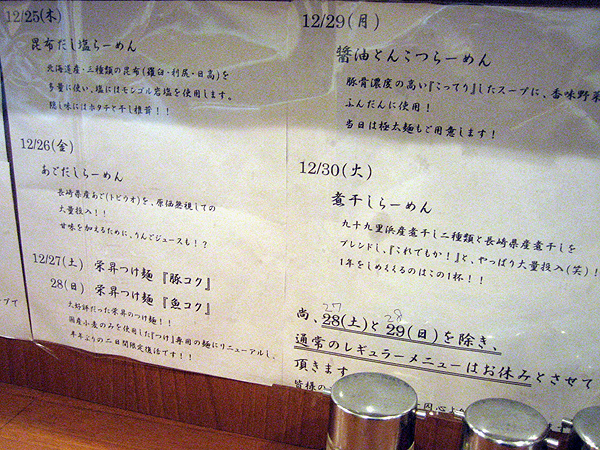 12/25(木)
昆布だし塩らーめん
北海道産・三種類の昆布(羅臼・利尻・日高)を
多量に使い、塩にはモンゴル岩塩を使用します。
隠し味にはホタテと干し椎茸！！
12/26(金)
あごだしらーめん
長崎県産あご(トビウオ)を、原価無視しての
大量投入！！
甘味を加えるために、りんごジュースも！？
12/27(土) 栄昇つけ麺『豚コク』
28(日) 栄昇つけ麺『魚コク』
大好評だった栄昇のつけ麺！！
国産小麦のみを使用した『つけ』専用の麺にリニューアルし、
半年ぶりの二日間限定復活です！！
プで
12/29(月)
醤油とんこつらーめん
豚骨濃度の高い『こってり』したスープに、香味野菜
ふんだんに使用！
当日は極太麺もご用意します！
12/30(火)
煮干しらーめん
九十九里浜産煮干し二種類と長崎県産煮干しを
ブレンドし、『これでもか！』と、やっぱり大量投入(笑)！
1年をしめくくるのはこの1杯！！
27 28
尚、28(土)と29(日)を除き、
通常のレギュラーメニューはお休みとさせて
頂きます
皆様の